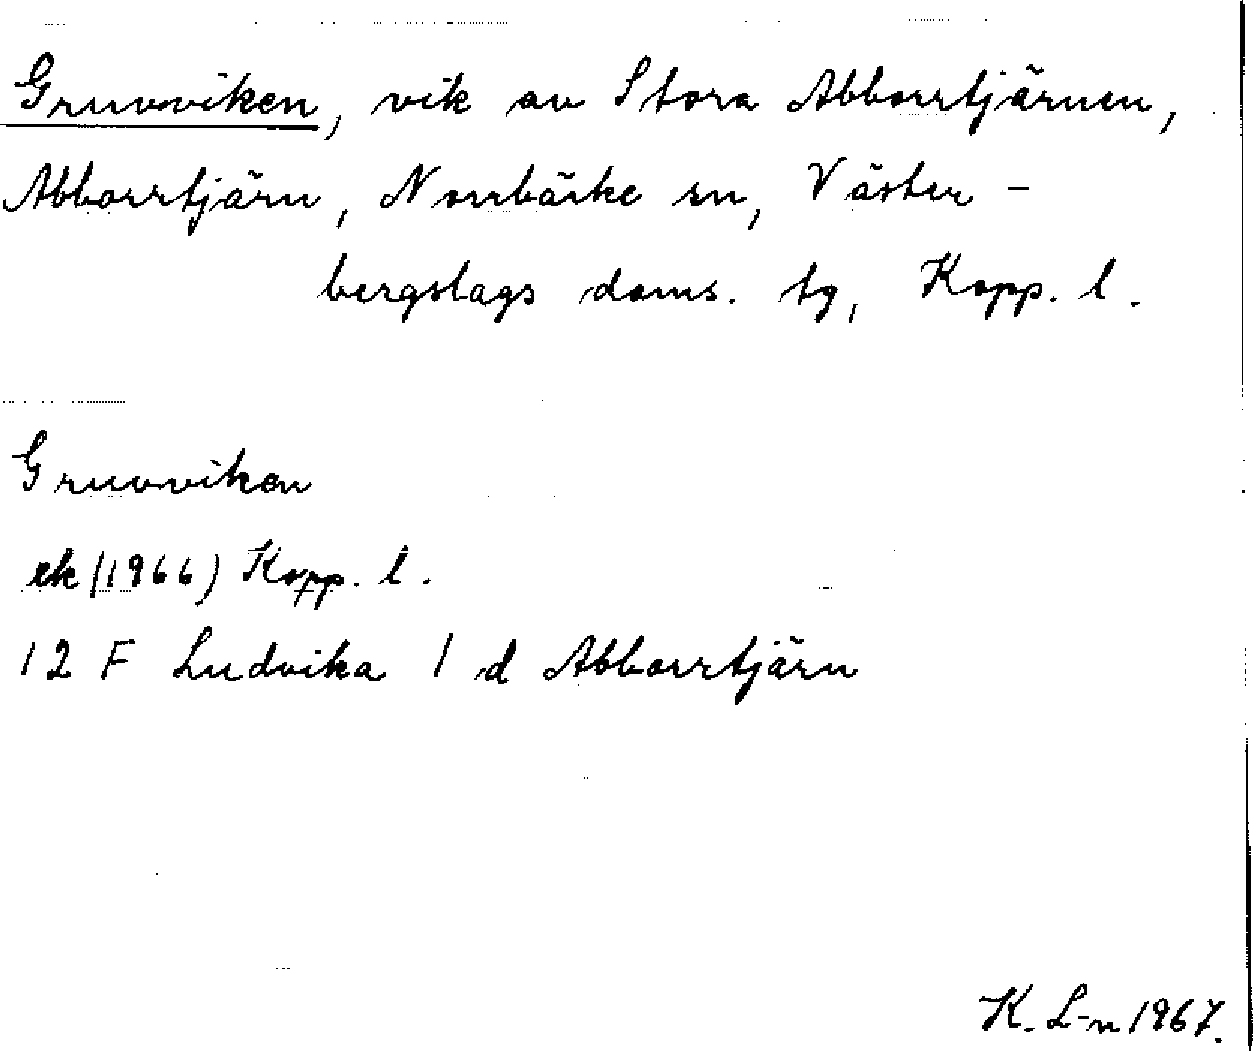 Gruvviken, vik av Stora Abborrtjärnen,
Abborrtjärn, Norrbärke sn, Väster-
bergslags doms. tg, Kopp. l.
Gruvviken
ek (1966) Kopp. l.
12 F Ludvika 1 d Abborrtjärn
K. L-n 1967.